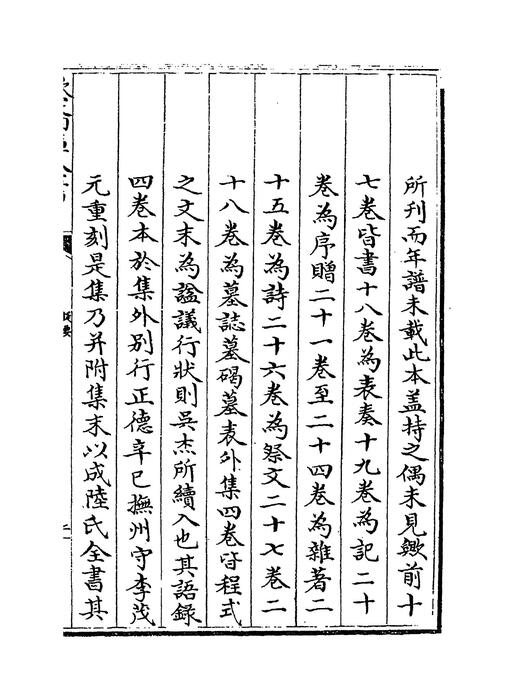 所刊而年譜未載此本盖持之偶未見歟前十
七卷皆書十八卷為表奏十九卷為記二十
卷為序贈二十一卷至二十四卷為雜著二
十五卷為詩二十六卷為祭文二十七卷二
十八卷為墓誌墓碣墓表外集四卷皆程式
之文末為諡議行狀則吳杰所續入也其語錄
四卷本於集外別行正德辛巳撫州守李茂
元重刻是集乃并附集末以成陸氏全書其
提要
二